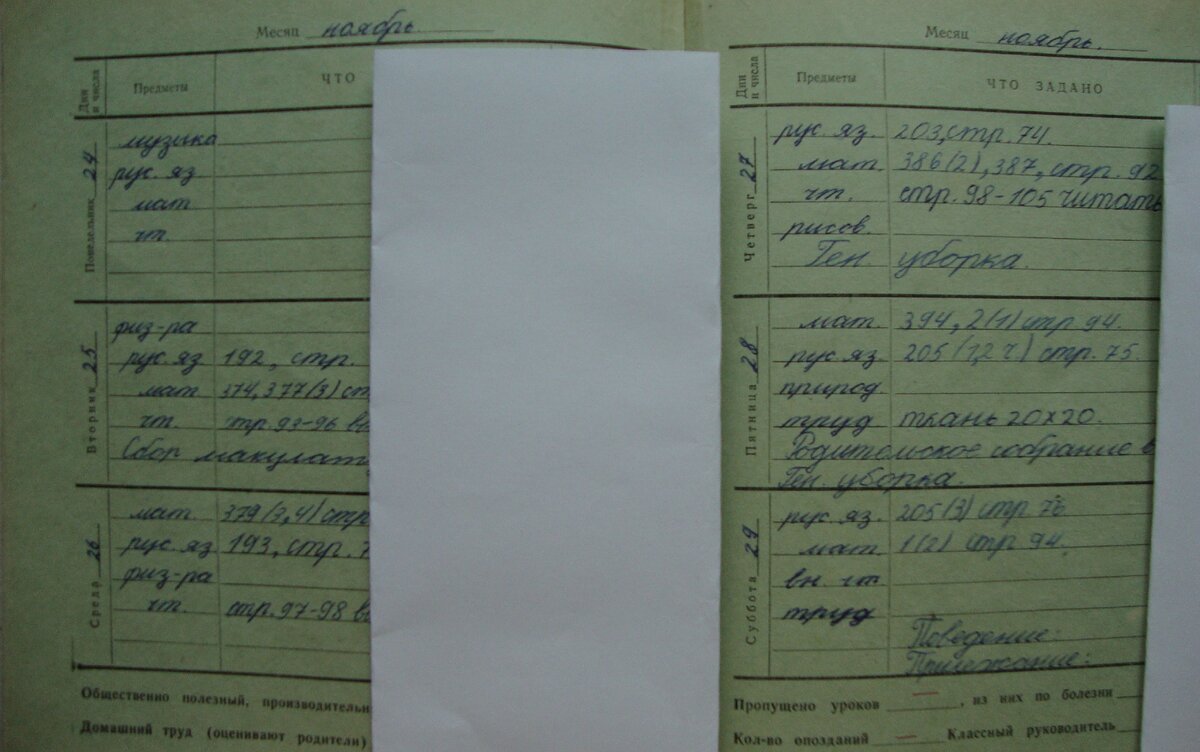 Месяц ноябрь.
Дни и числа Предметы ЧТО
Понедельник 24
музика
рус. яз.
мат
чт.
Вторник 25
физ-ра
рус. яз 192, стр.
мат 374, 377(3) ст
чт. стр. 93-96 в
Сбор макулат
Среда 26
мат. 379(3,4) стр
рус. яз 193, стр. 7
физ-ра
чт. стр. 97-98 в
Общественно полезный, производительн
Домашний труд (оценивают родители)
Месяц ноябрь.
Дни и числа Предметы ЧТО ЗАДАНО
Четверг 27
рус. яз. 203, стр. 74.
мат. 386(2), 387, стр. 92
чт. стр. 98-105 читать
рисов.
Ген. уборка.
Пятница 28
мат. 394, 2(1) стр 94.
рус. яз. 205 (1,2 ч) стр. 75.
природ
труд ткань 20х20.
Родительское собрание в
Ген. уборка.
Суббота 29
рус. яз. 205(3) стр 76
мат 1(2) стр 94.
вн. чт
труд
Поведение:
Прилежание:
Пропущено уроков —, из них по болезни
Кол-во опозданий — Классный руководитель